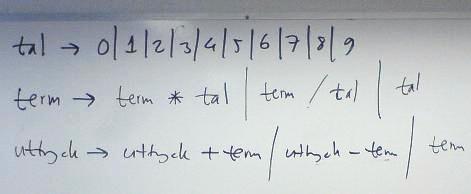 tal → 0|1|2|3|4|5|6|7|8|9
term → term * tal | term / tal | tal
uttryck → uttryck + term | uttryck - term | term